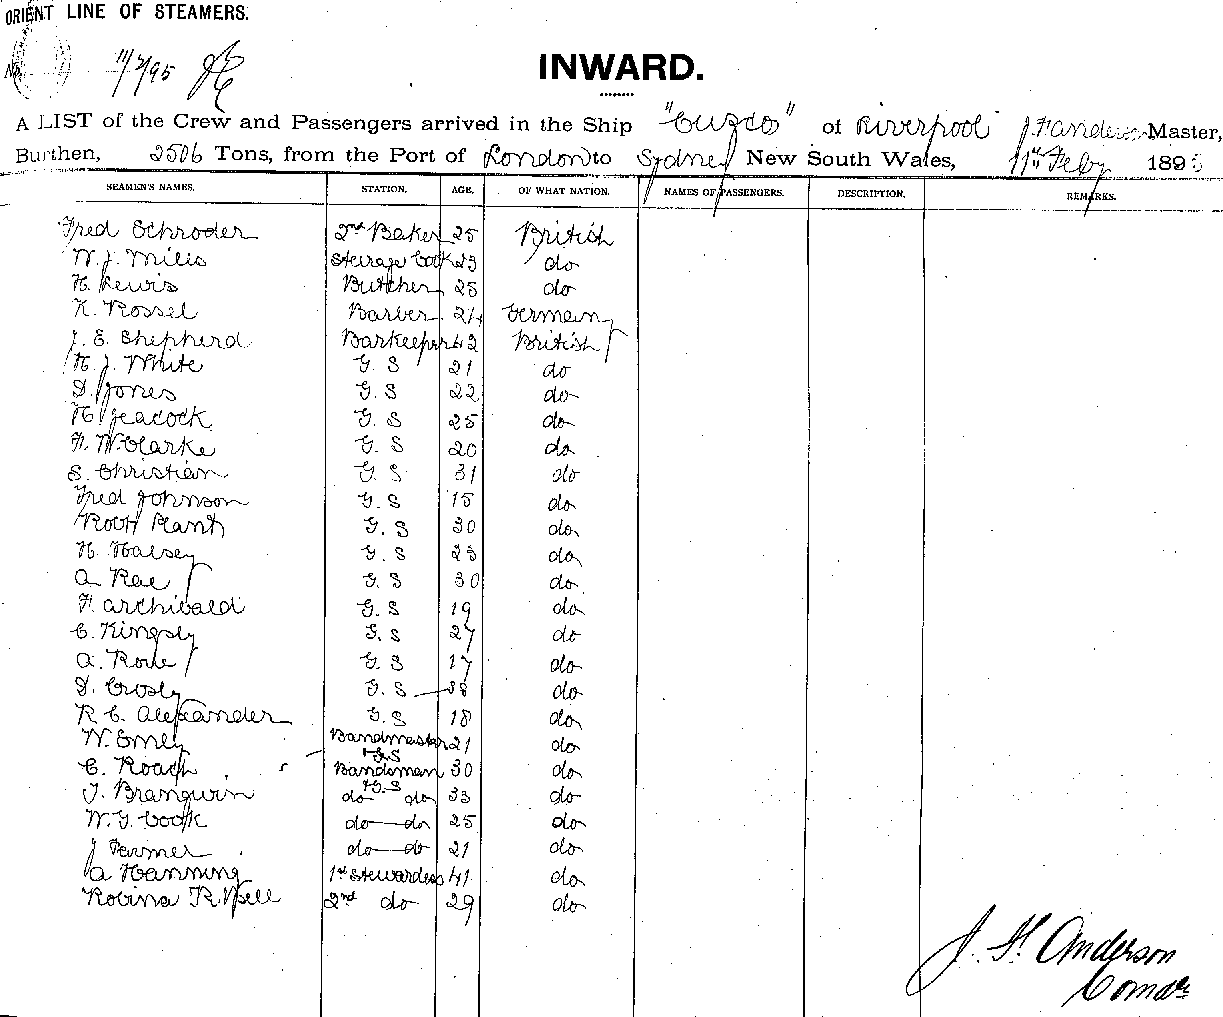 ORIENT LINE OF STEAMERS.
No.
11/2/95
INWARD.
A LIST of the Crew and Passengers arrived in the Ship "Cuzco" of Liverpool J. F. Anderson Master,
Burthen, 2506 Tons, from the Port of London to Sydney New South Wales, 11th Feby 1895
SEAMEN'S NAMES. STATION. AGE. OF WHAT NATION. NAMES OF PASSENGERS. DESCRIPTION. REMARKS.
Fred Schroder 2nd Baker 25 British
W. J. Mills Steerage Cook 23 do
H. Lewis Butcher 25 do
H. Rossel Barber 24 German
J. E. Shepherd Barkeeper 42 British
H. J. White G. S 21 do
D. Jones G. S 22 do
H Peacock G. S 25 do
F. W. Clarke G. S 20 do
S. Christian G. S 31 do
Fred Johnson G. S 18 do
Robt Plant G. S 30 do
H. Halsey G. S 23 do
A Rae G. S 30 do
F. Archibald G. S 19 do
C. Kingsly G. S 27 do
A. Rowe G. S 17 do
D. Crosly G. S 38 do
R C. Alexander G. S 18 do
W. Emey Bandmaster & G S 21 do
C. Roach Bandsman & G. S 30 do
T. Brangwin do do 33 do
W. G. Cook do do 25 do
J Farmer do do 21 do
A Hanning 1st Stewardess 41 do
Robina R. Bell 2nd do 29 do
J. F. Anderson
Comdr